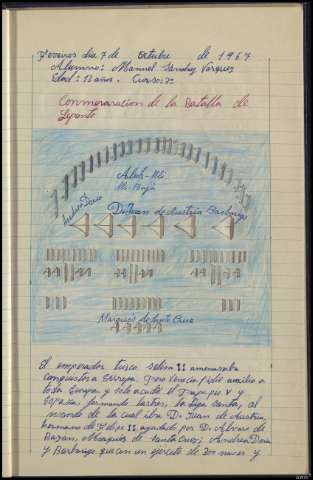 día 7 de Octubre de 1967
Alumno: Manuel Sandez Vazquez
Edad: 13 años. Curso: 2º
Conmeracion de la Batalla de
Lepanto
Aluh-Ali
Ali-Bajá
Andrea Doria
D. Juan de Austria Barbarigo
Marqués de Santa Cruz
El emperador turco selim II amenazaba
conquistar a Europa. Pero Venecia pidió auxilio a
toda Europa y solo acudió el Papa pio V y
España, formando tantos, la liga santa, al
mando de la cual iba D. Juan de Austria,
hermano de Felipe II, ayudado por D. Alvaro de
Bazan, Marqués de Santa Cruz, Andrea Doria
y Barbarigo que con un ejercito de 300 naves y